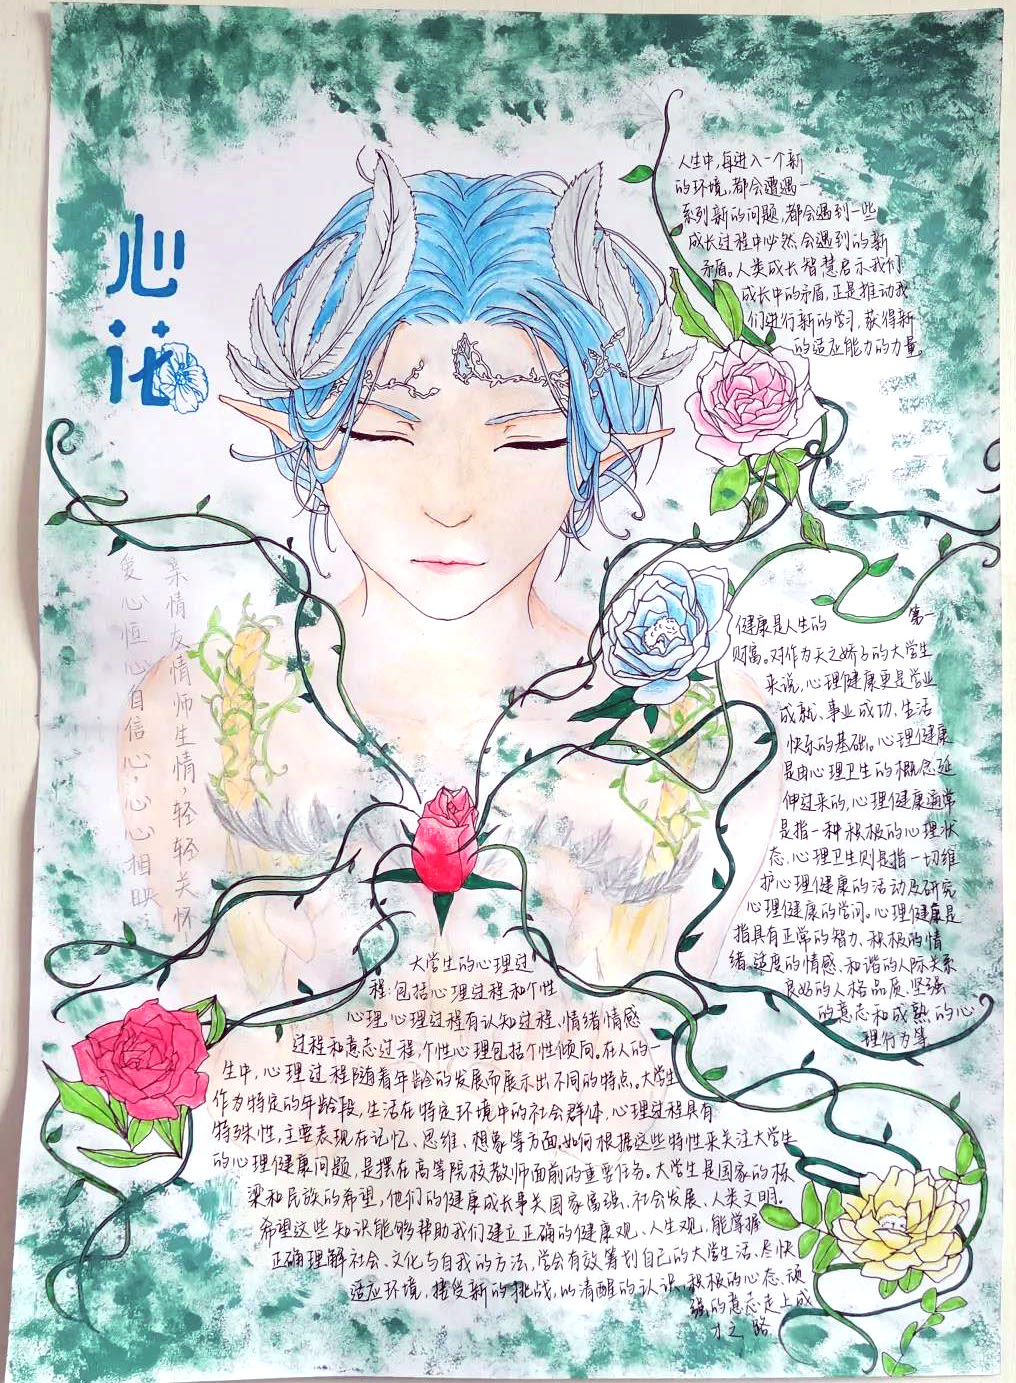 心
花
人生中,每进入一个新
的环境,都会遭遇一
系列新的问题,都会遇到一些
成长过程中必然会遇到的新
矛盾。人类成长智慧启示我们
成长中的矛盾,正是推动我
们进行新的学习,获得新
的适应能力的力量。
亲情友情师生情,轻轻关怀
爱心恒心自信心,心心相映…
健康是人生的 第一
财富。对作为天之娇子的大学生
来说,心理健康更是学业
成就、事业成功、生活
快乐的基础。心理健康
是由心理卫生的概念延
伸过来的,心理健康通常
是指一种积极的心理状
态,心理卫生则是指一切维
护心理健康的活动及研究
心理健康的学问。心理健康是
指具有正常的智力、积极的情
绪、适度的情感、和谐的人际关系
良好的人格品质、坚强
的意志和成熟的心
理行为等
大学生的心理过
程:包括心理过程和个性
心理。心理过程有认知过程、情绪情感
过程和意志过程,个性心理包括个性倾向。在人的一
生中,心理过程随着年龄的发展而展示出不同的特点。大学生
作为特定的年龄段,生活在特定环境中的社会群体,心理过程具有
特殊性,主要表现在记忆、思维、想象等方面。如何根据这些特性来关注大学生
的心理健康问题,是摆在高等院校教师面前的重要任务。大学生是国家的栋
梁和民族的希望,他们的健康成长事关国家富强、社会发展、人类文明。
希望这些知识能够帮助我们建立正确的健康观、人生观,能掌握
正确理解社会、文化与自我的方法,学会有效筹划自己的大学生活、尽快
适应环境,接受新的挑战,以清醒的认识、积极的心态、顽
强的意志走上成
才之路